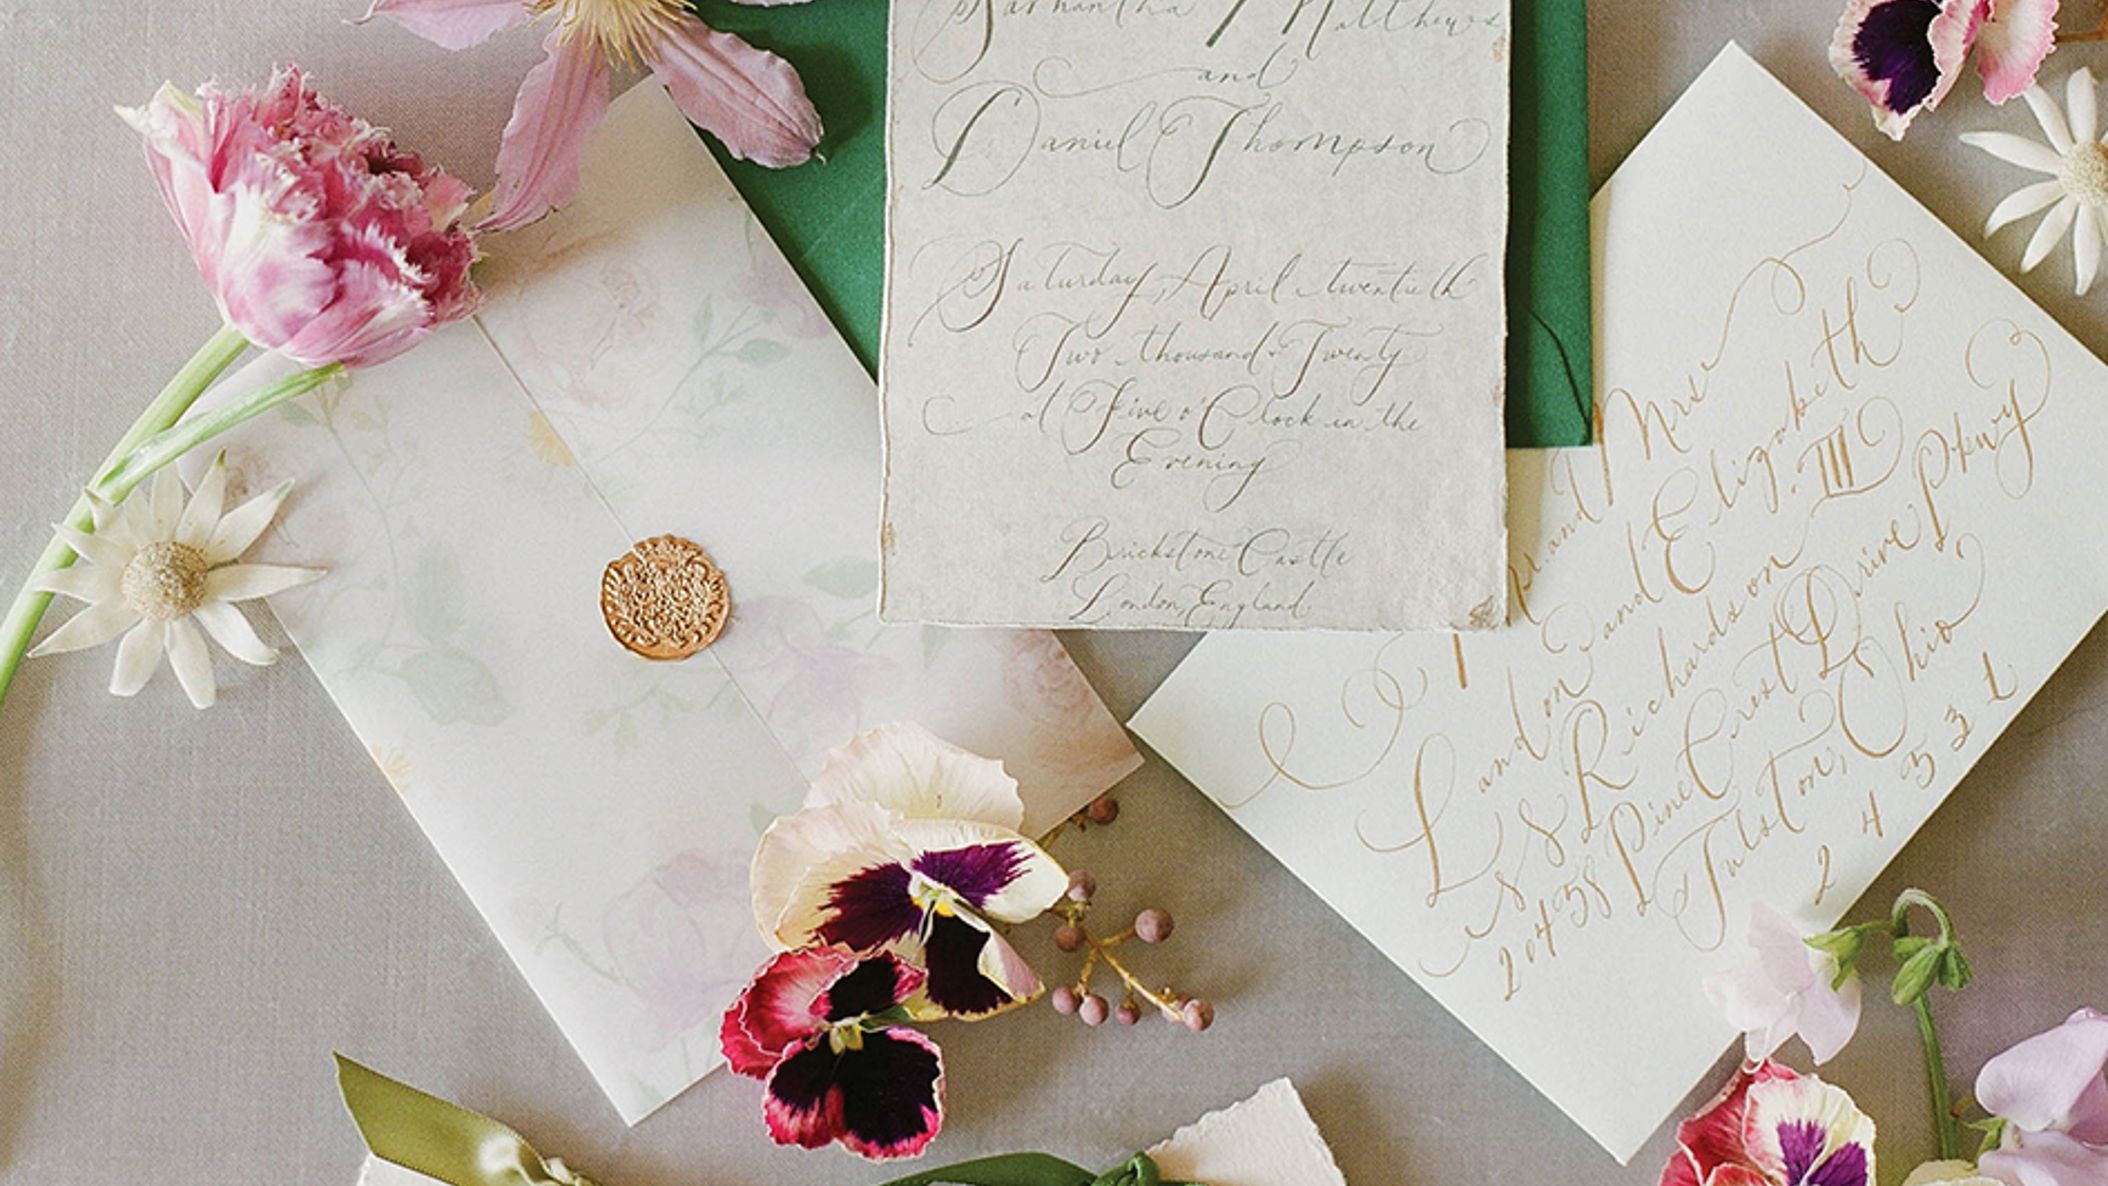 Samantha Matthews
and
Daniel Thompson
Saturday, April twentieth
Two thousand Twenty
at Five o'Clock in the
Evening
Brickstone Castle
London, England
Mr. and Mrs
Landon and Elizabeth
Richardson III
20458 Pine Crest Drive Pkwy
Tulston, Ohio
24531